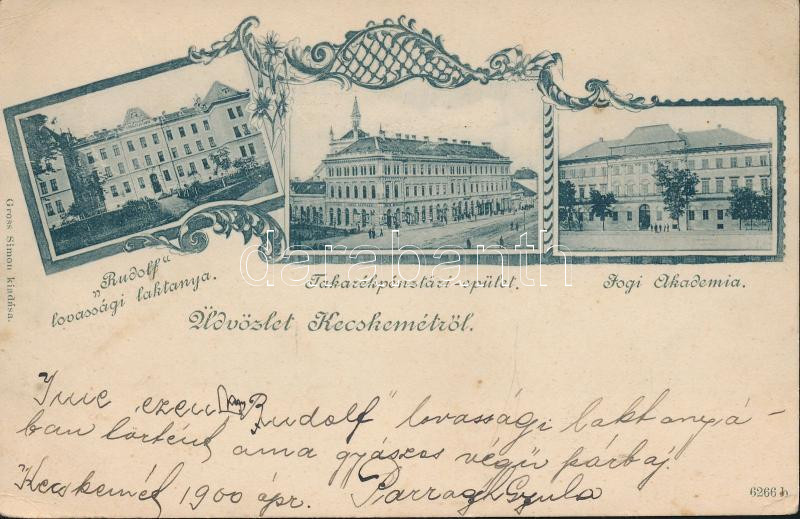 Gross Simon kiadása.
„Rudolf“
lovassági laktanya.
Takarékpénztári-epület.
Jogi Akademia.
Üdvözlet Kecskemétről.
darabanth
Ime ezen „Rudolf" lovassági laktanyá-
ban történt ama gyászos végü párbaj.
Kecskemét 1900 ápr. Parragh Gyula
6266 b